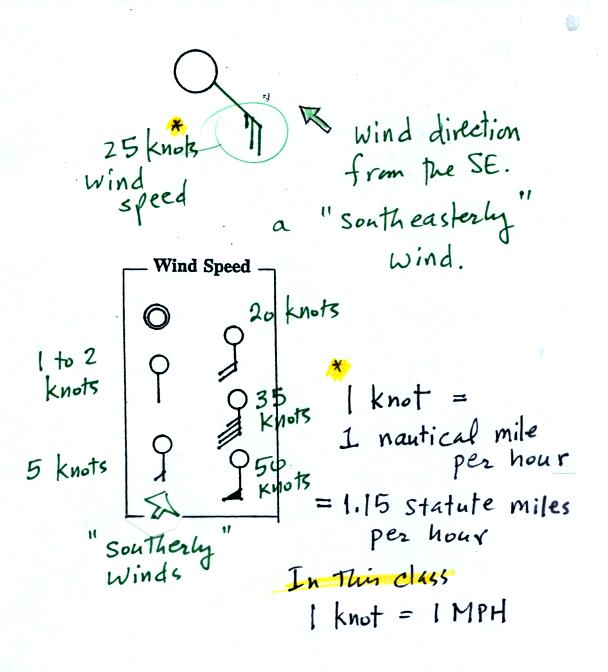 * 25 knots
wind
speed
wind direction
from the SE.
a "southeasterly"
wind.
Wind Speed
20 knots
1 to 2
knots
35
knots
5 knots
50
knots
"Southerly"
winds
*
1 knot =
1 nautical mile
per hour
= 1.15 statute miles
per hour
In this class
1 knot = 1 MPH